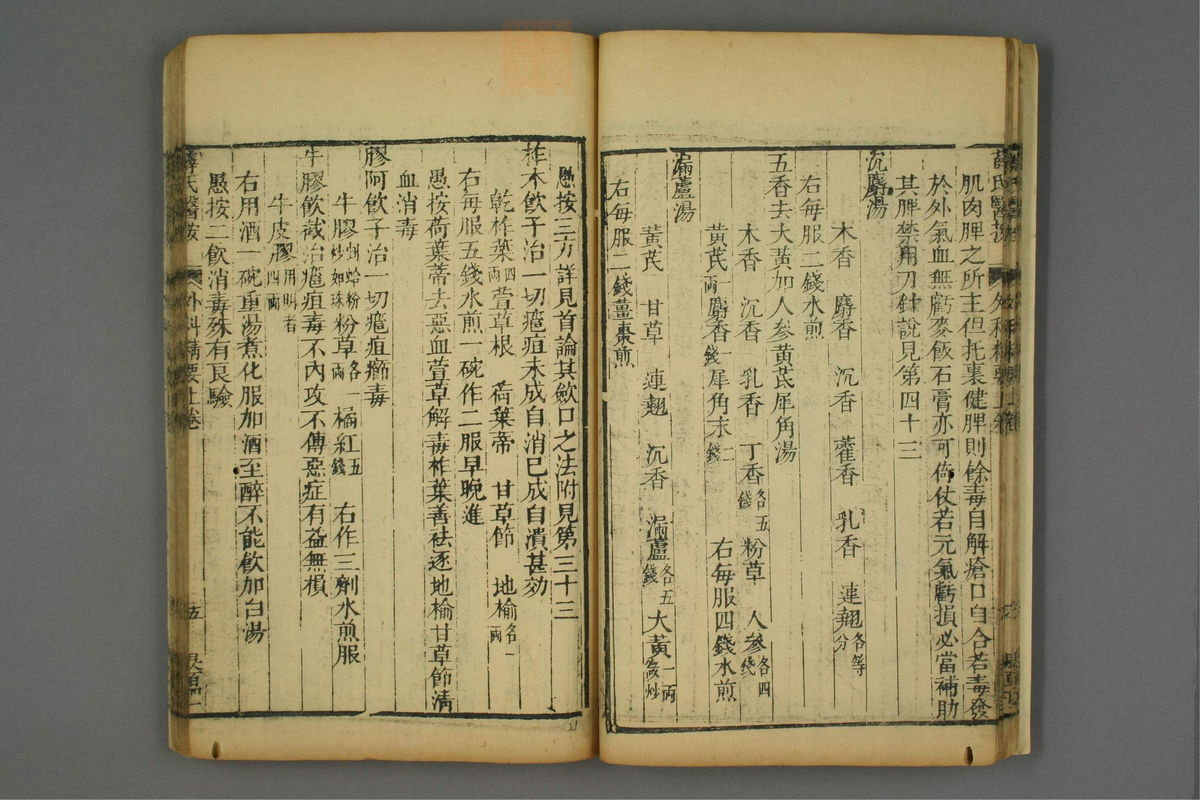 肌肉脾之所主但托裏健脾則餘毒自解瘡口自合若毒發
於外氣血無虧麥飯石膏亦可倚仗若元氣虧損必當補助
其脾禁用刀針說見第四十三
沉麝湯
木香 麝香 沉香 藿香 乳香 連翹各等分
右每服二錢水煎
五香去大黃加人參黃芪犀角湯
木香 沉香 乳香 丁香各五錢 粉草 人參各四錢
黃芪一兩 麝香一錢 犀角末二錢 右每服四錢水煎
漏蘆湯
黃芪 甘草 連翹 沉香 漏蘆各五錢 大黃一兩炒
右每服二錢薑棗煎
愚按三方詳見首論其歛口之法附見第三十三
柞木飲子治一切瘡疽未成自消已成自潰甚効
乾柞葉四兩 萱草根 荷葉蒂 甘草節 地榆各一兩
右每服五錢水煎一碗作二服早晚進
愚按荷葉蒂去惡血萱草解毒柞葉善祛逐地榆甘草節清
血消毒
膠阿飲子治一切瘡疽癤毒
牛膠剉蛤粉炒如珠 粉草各一兩 橘紅五錢 右作三劑水煎服
牛膠飲截治瘡疽毒不內攻不傳惡症有益無損
牛皮膠用明者四兩
右用酒一碗重湯煮化服加酒至醉不能飲加白湯
愚按二飲消毒殊有良驗
薛氏醫按 外科精要上卷 五